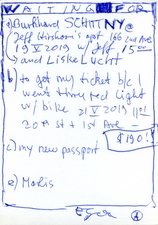 WAITING FOR
a) Burkhard SCHITTNY @
Jeff Hirshorn's apt 166 2nd Ave
19 V 2019 w/ Jeff 15 00
and Liske Lucht
b) to get my ticket b/c I
went thru red light
w/ bike 21 V 2019 11 21
20th st + 1st Ave
$190!
c) my new passport
e) Maris